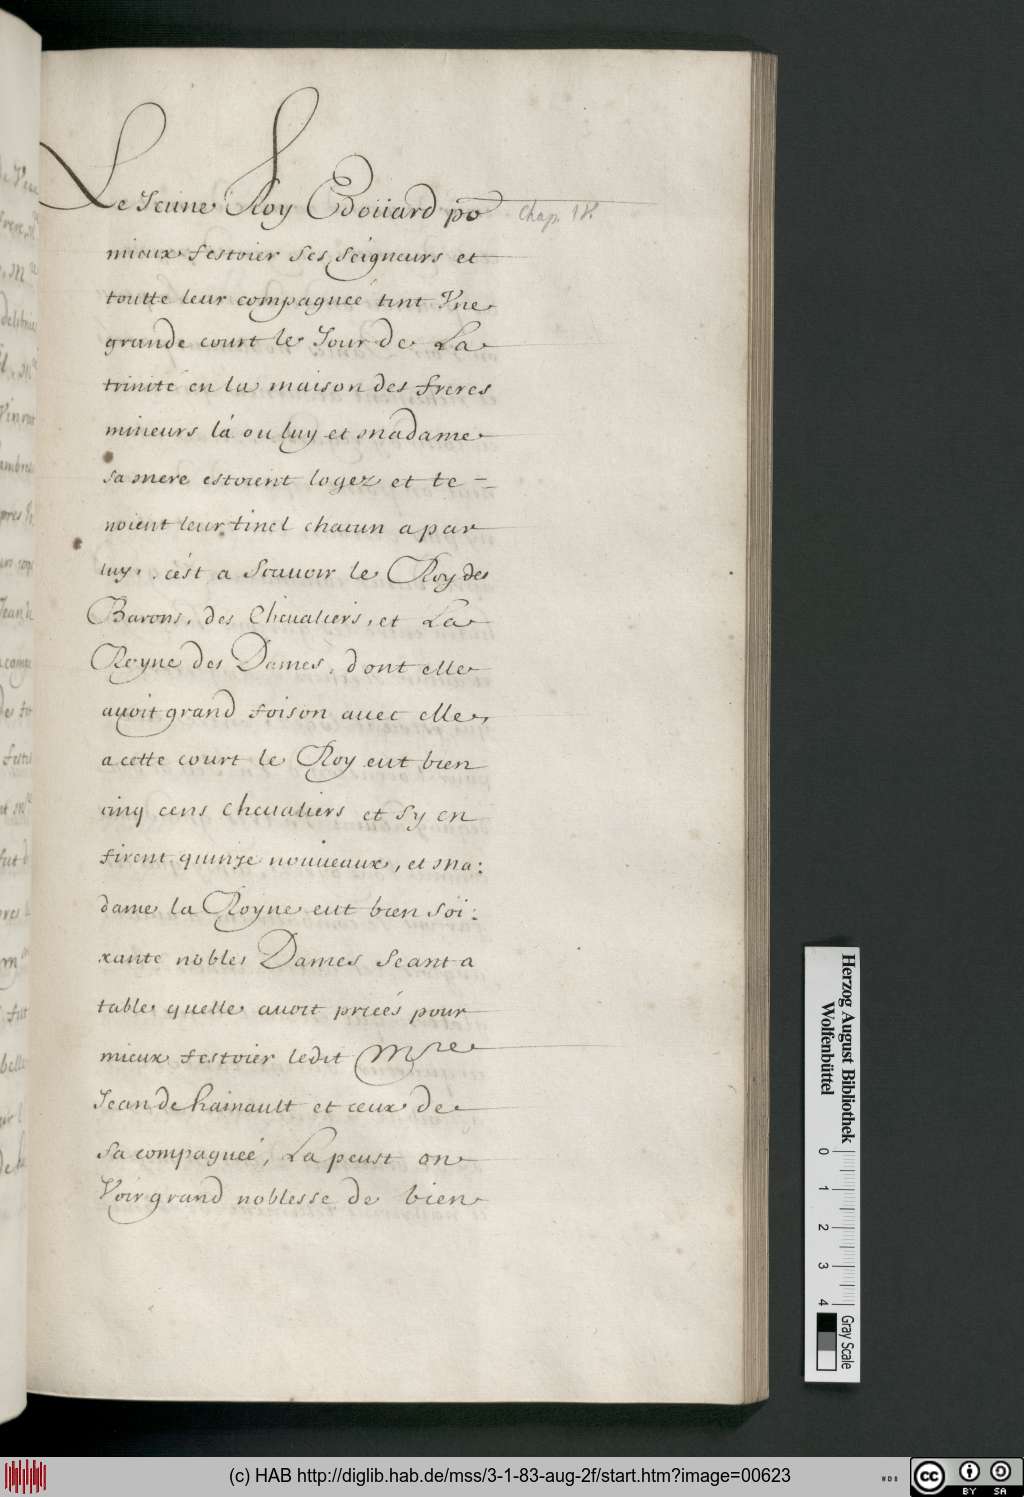 Le Jeune Roy Edoüard po
Chap. 18
mieux festoier ses seigneurs et
toutte leur compagneé tint Vne
grande court le Jour de La
trinité en la maison des freres
mineurs lá ou luy et madame
sa mere estoient logez et te-
noient leur tinel chacun a par
luy. cést a Scauoir le Roy des
Barons, des Cheualiers, et La
Royne des Dames, dont elle
auoit grand foison auec elle,
a cette court le Roy eut bien
cinq cens cheualiers et sy en
firent quinze nouueaux, et ma:
dame la Royne eut bien soi:
xante nobles Dames Seant a
table quelle auoit prieés pour
mieux festoier ledit Mre
Jean de hainault et ceux de
sa compagneé, La peust on
Voir grand noblesse de bien
Herzog August Bibliothek
Wolfenbüttel
0 1 2 3 4
Gray Scale
(c) HAB http://diglib.hab.de/mss/3-1-83-aug-2f/start.htm?image=00623
cc BY SA